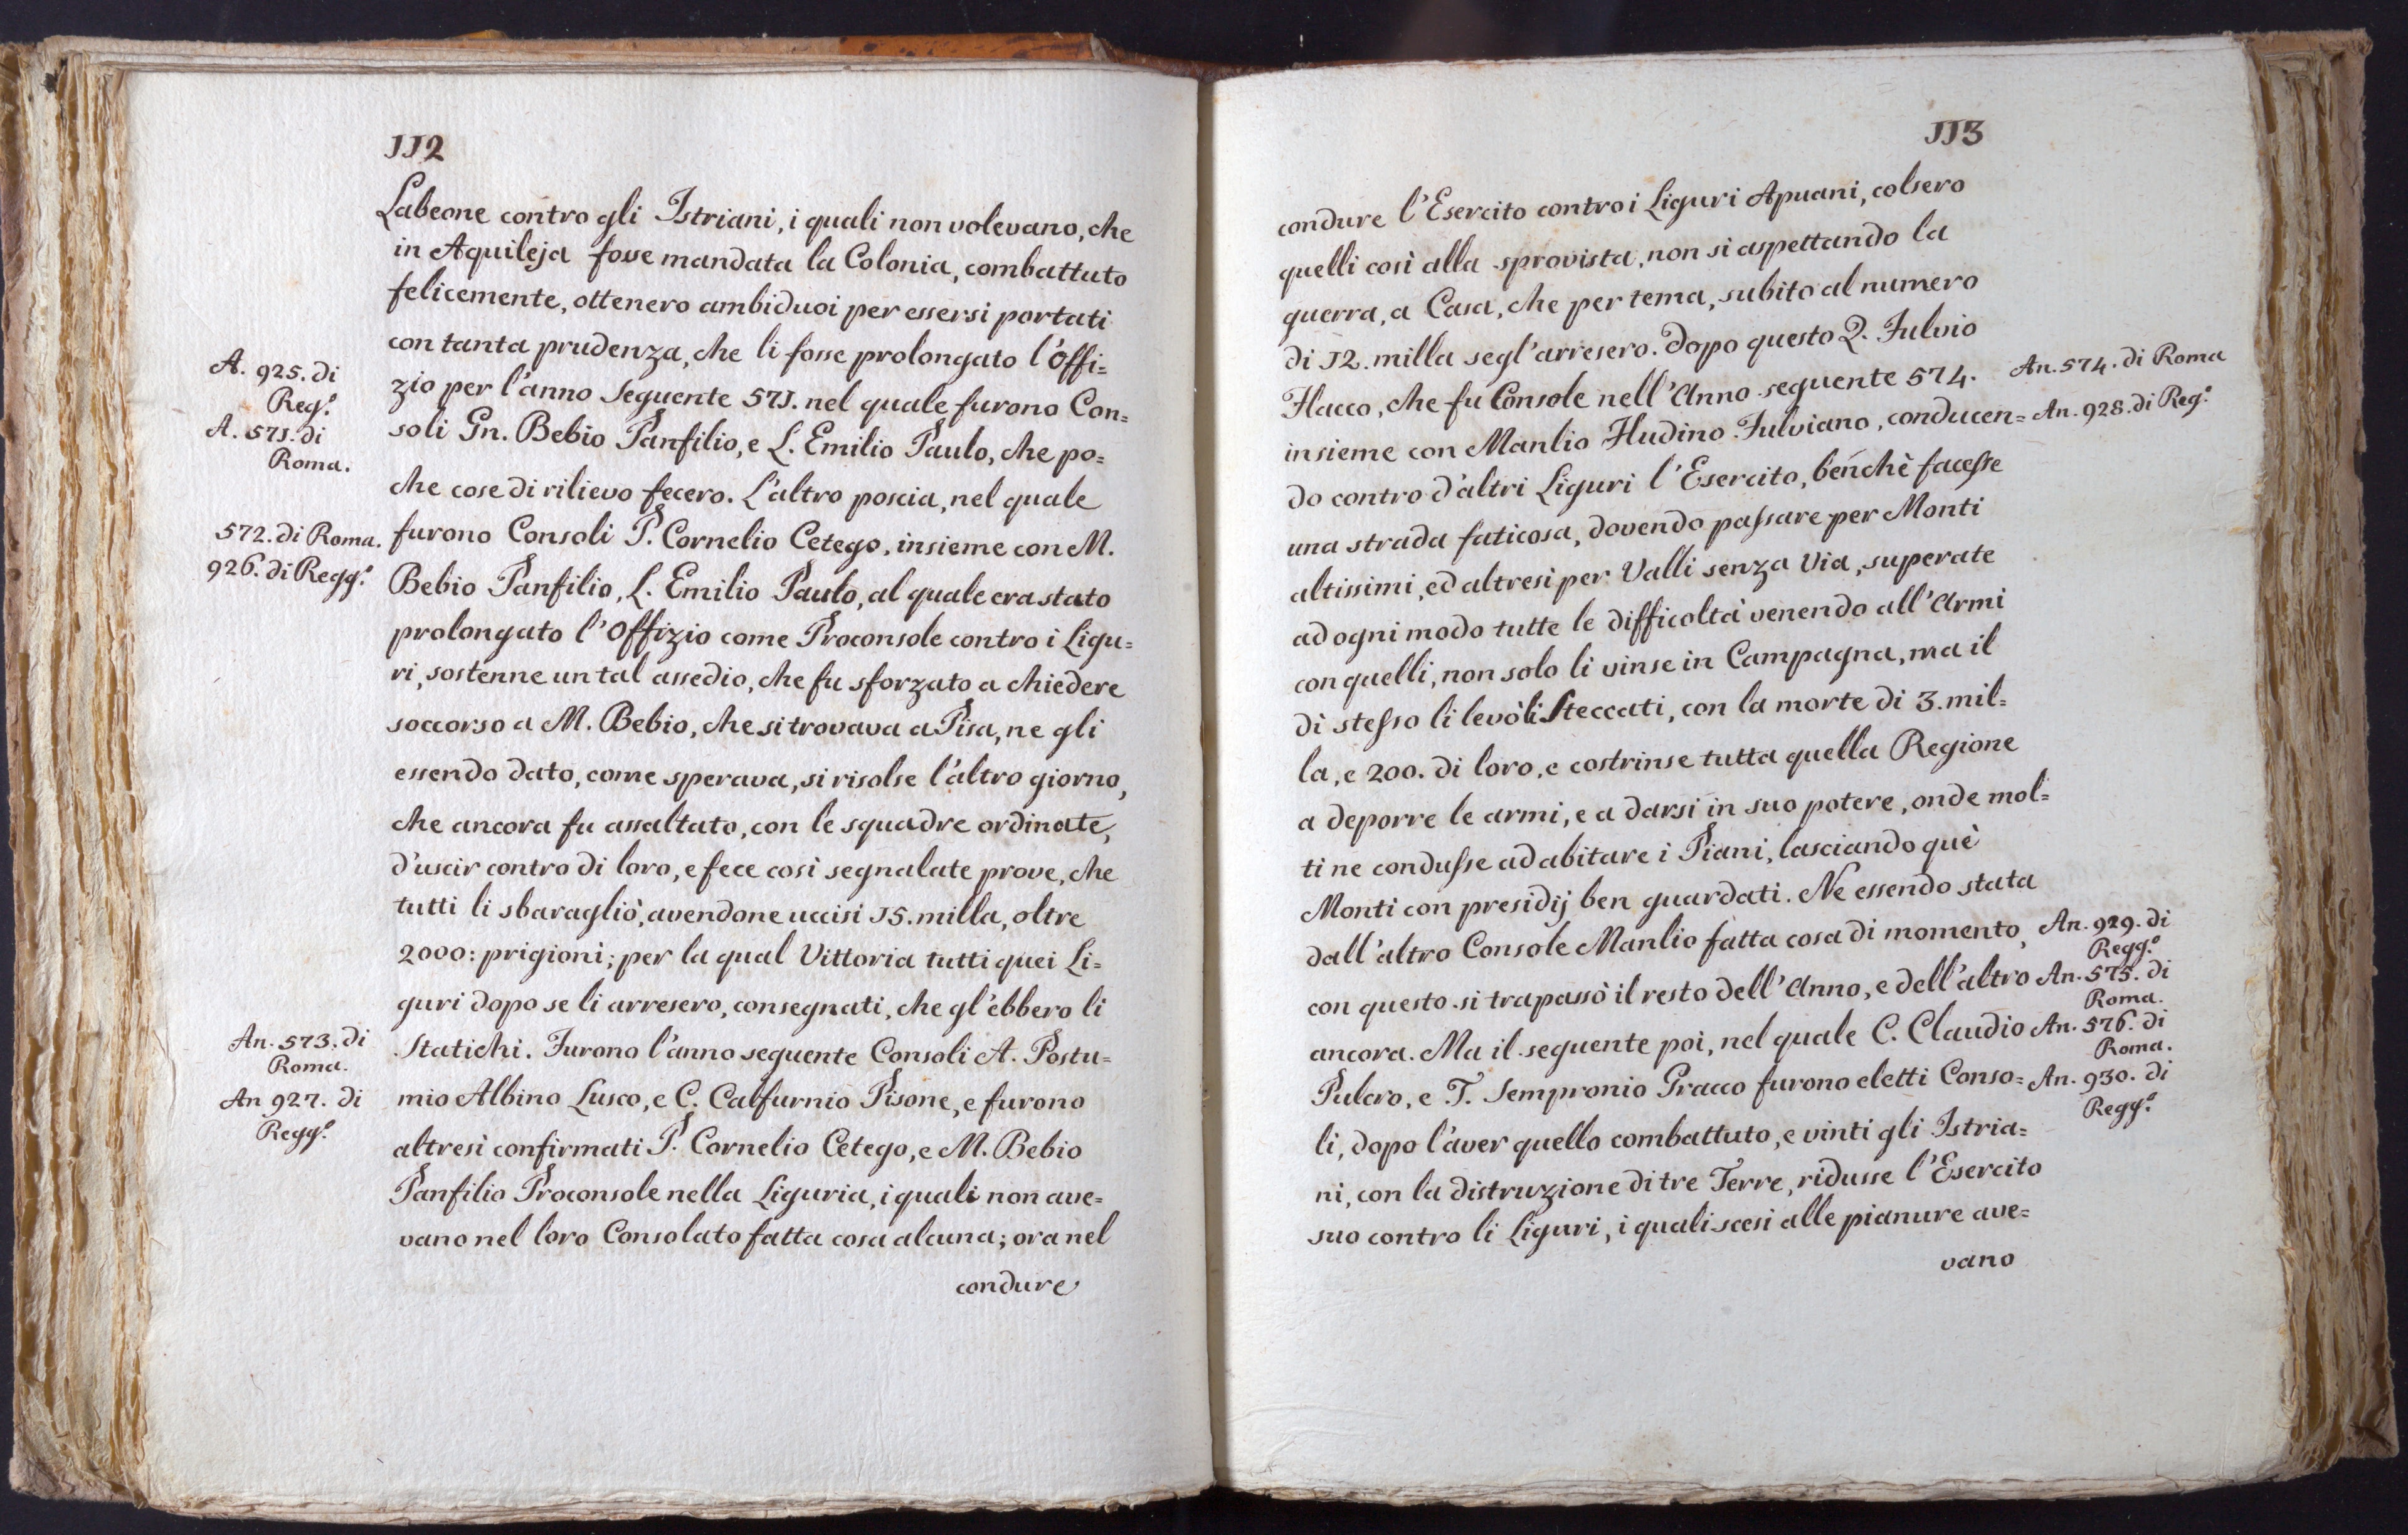 112
Labeone contro gli Istriani, i quali non volevano, che
in Aquileja fosse mandata la Colonia, combattuto
felicemente, ottenero ambiduoi per essersi portati
con tanta prudenza, che li fosse prolongato l'Offi=
zio per l'anno seguente 571. nel quale furono Con=
soli Gn. Bebio Panfilio, e L. Emilio Paulo, che po=
che cose di rilievo fecero. L'altro poscia, nel quale
furono Consoli P. Cornelio Cetego, insieme con M.
Bebio Panfilio, L. Emilio Paulo, al quale era stato
prolongato l'Offizio come Proconsole contro i Ligu=
ri, sostenne un tal assedio, che fu sforzato a chiedere
soccorso a M. Bebio, che si trovava a Pisa, ne gli
essendo dato, come sperava, si risolse l'altro giorno,
che ancora fu assaltato, con le squadre ordinate,
d'uscir contro di loro, e fece così segnalate prove, che
tutti li sbaragliò, avendone uccisi 15. milla, oltre
2000: prigioni; per la qual Vittoria tutti quei Li=
guri dopo se li arresero, consegnati, che gl'ebbero li
Statichi. Furono l'anno seguente Consoli A. Postu=
mio Albino Lusco, e C. Calfurnio Pisone, e furono
altresì confirmati P. Cornelio Cetego, e M. Bebio
Panfilio Proconsole nella Liguria, i quali non ave=
vano nel loro Consolato fatta cosa alcuna; ora nel
condure
A. 925. di
Reg.o
A. 571. di
Roma.
572. di Roma.
926. di Regg.o
An. 573. di
Roma.
An 927. di
Regg.o
113
condure l'Esercito contro i Liguri Apuani, colsero
quelli così alla sprovista, non si aspettando la
guerra, a Casa, che per tema, subito al numero
di 12. milla segl'arresero. Dopo questo Q. Fulvio
Flacco, che fu Console nell'Anno seguente 574.
insieme con Manlio Fludino Fulviano, conducen=
do contro d'altri Liguri l'Esercito, benchè facesse
una strada faticosa, dovendo passare per Monti
altissimi, ed altresì per Valli senza Via, superate
ad ogni modo tutte le difficoltà venendo all'Armi
con quelli, non solo li vinse in Campagna, ma il
dì stesso li levò li Steccati, con la morte di 3. mil=
la, e 200. di loro, e costrinse tutta quella Regione
a deporre le armi, e a darsi in suo potere, onde mol=
ti ne condusse ad abitare i Piani, lasciando què
Monti con presidij ben guardati. Ne essendo stata
dall'altro Console Manlio fatta cosa di momento,
con questo si trapassò il resto dell'Anno, e dell'altro
ancora. Ma il seguente poi, nel quale C. Claudio
Pulcro, e T. Sempronio Gracco furono eletti Conso=
li, dopo l'aver quello combattuto, e vinti gli Istria=
ni, con la distruzione di tre Terre, ridusse l'Esercito
suo contro li Liguri, i quali scesi alle pianure ave=
vano
An. 574. di Roma
An. 928. di Reg.o
An. 929. di
Regg.o
An. 575. di
Roma.
An. 576. di
Roma.
An. 930. di
Regg.o